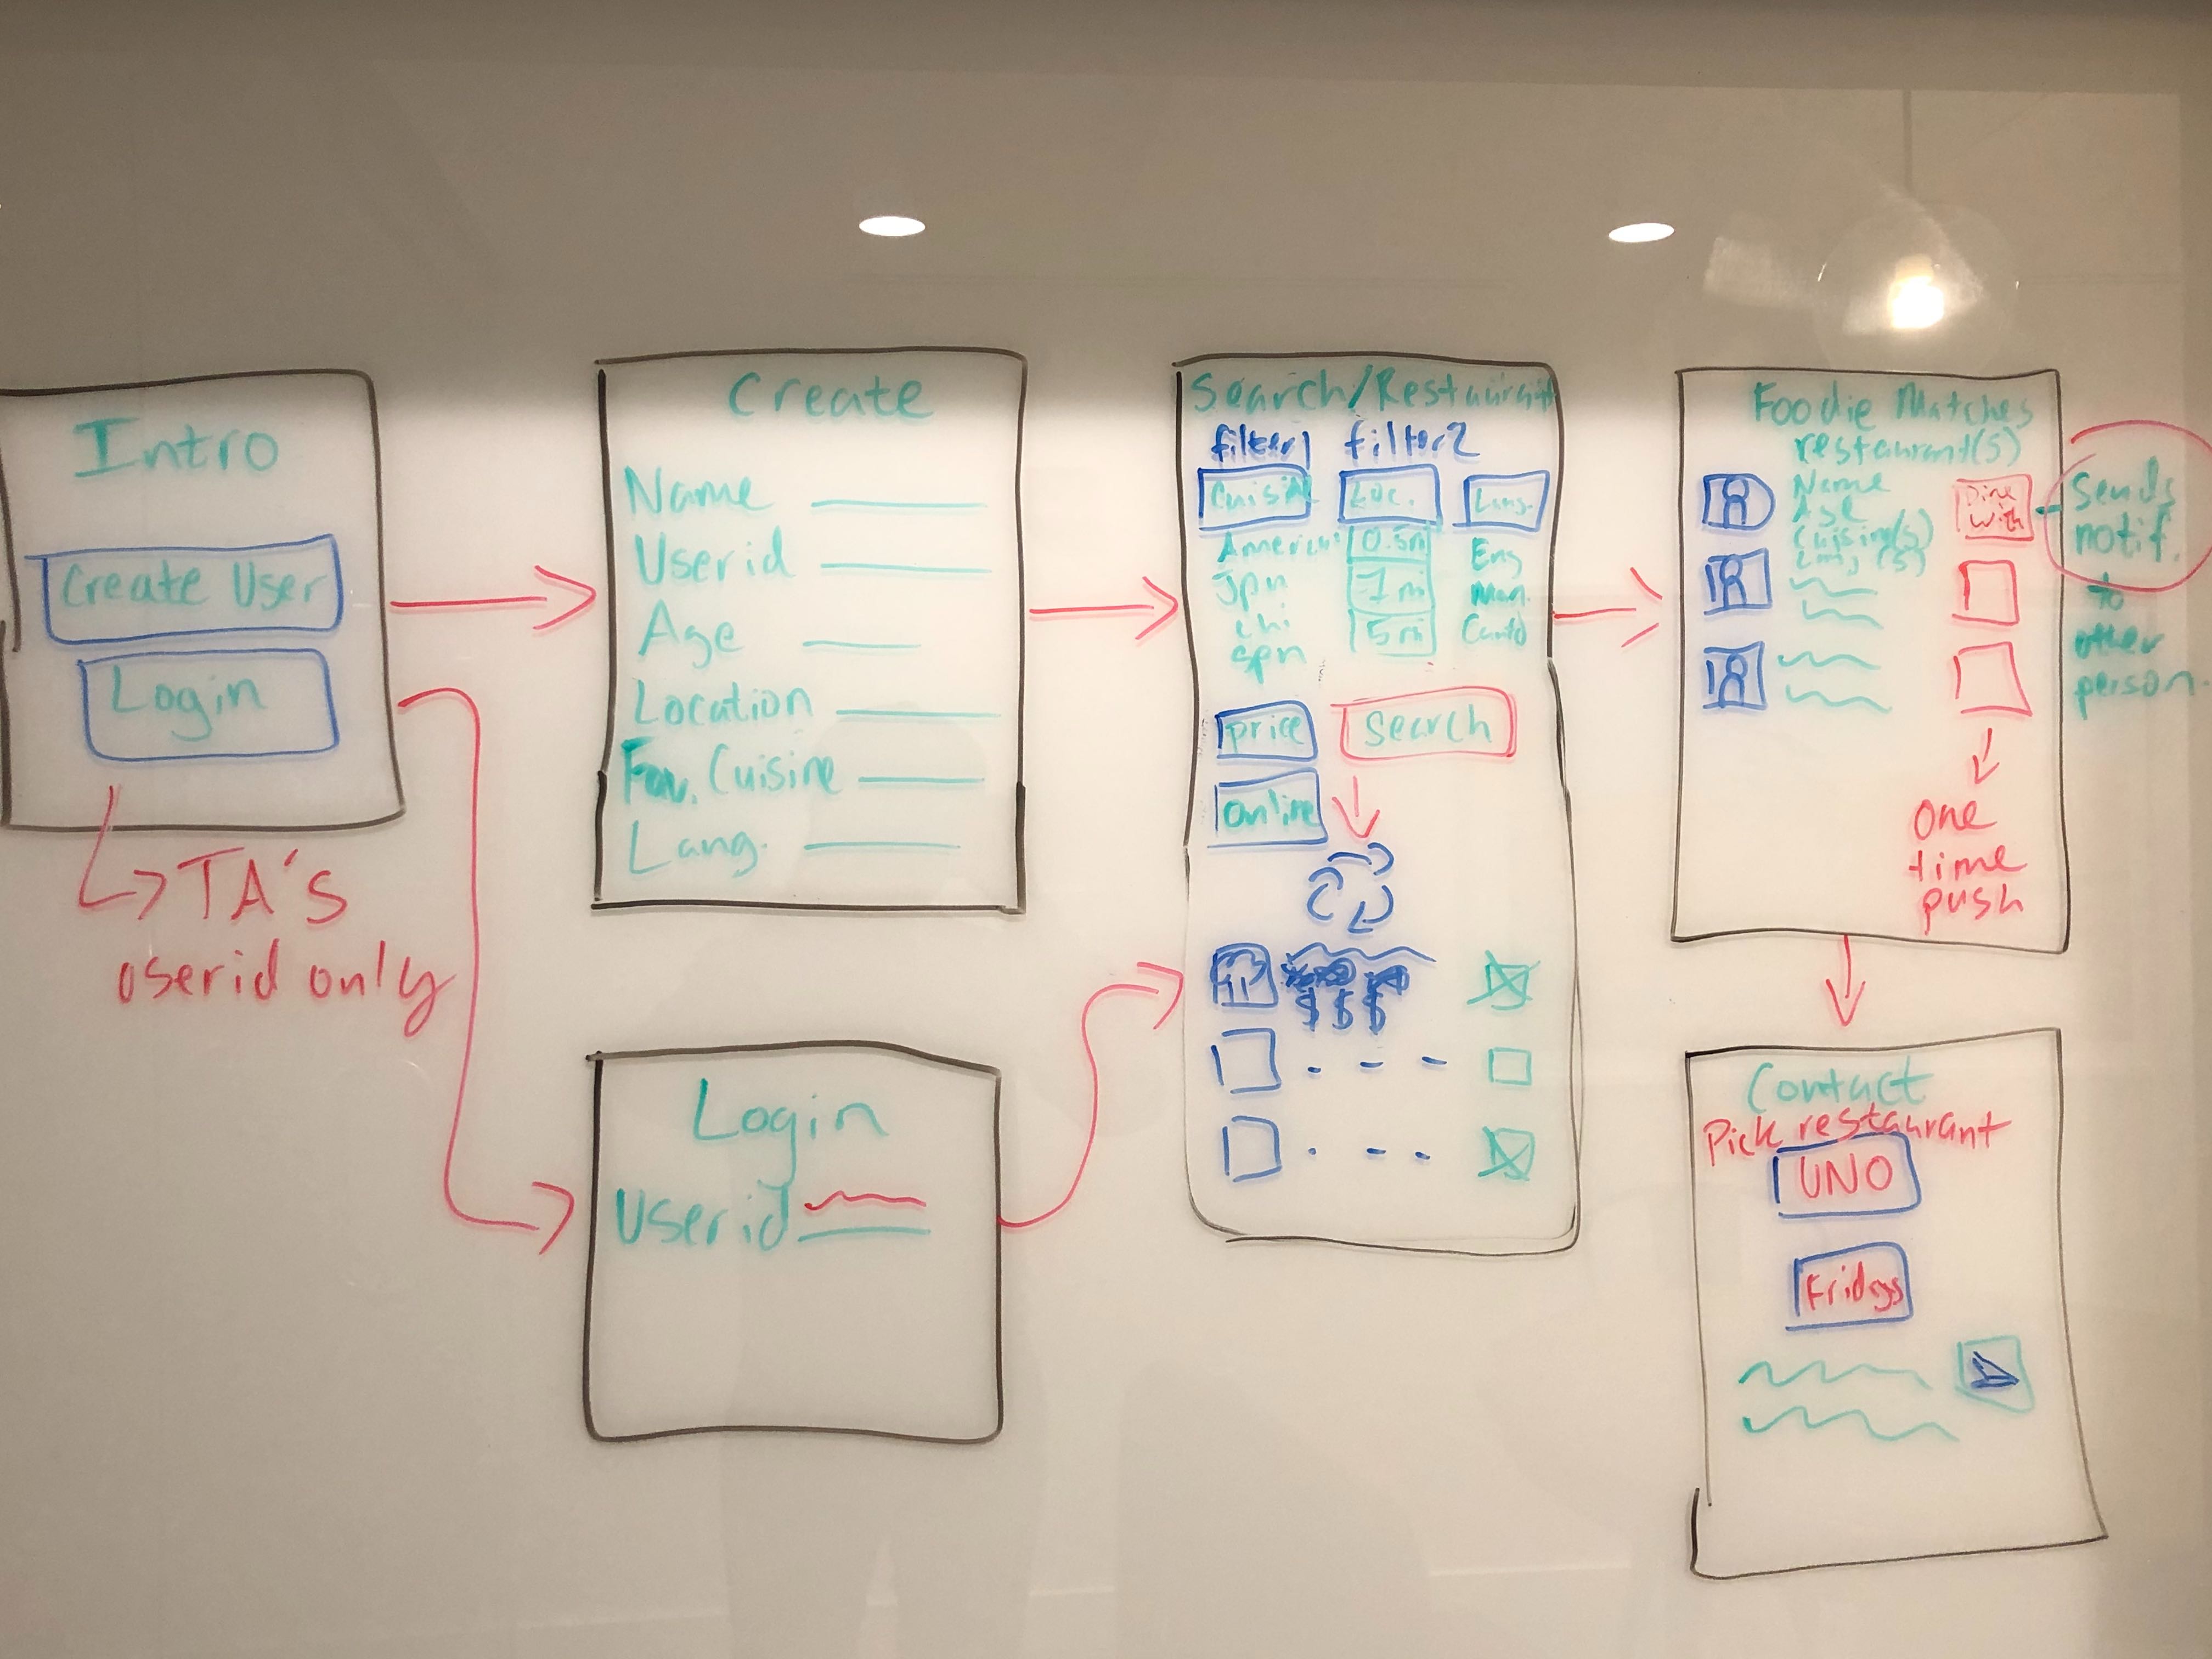 Intro
Create User
Login
TA's
userid only
Create
Name
Userid
Age
Location
Fav. Cuisine
Lang.
Login
Userid
Search/Restaurant
filter1 filter2
Loc. Lang.
0.5m Eng
Jpn 1 mi Man.
chi 5m
spn
price Search
online
$ $ $
Foodie Matches
restaurant(s)
Name
Age
Cuisine(s)
Dine
with
Sends
notif.
to
other
person.
one
time
push
Contact
Pick restaurant
UNO
Fridays